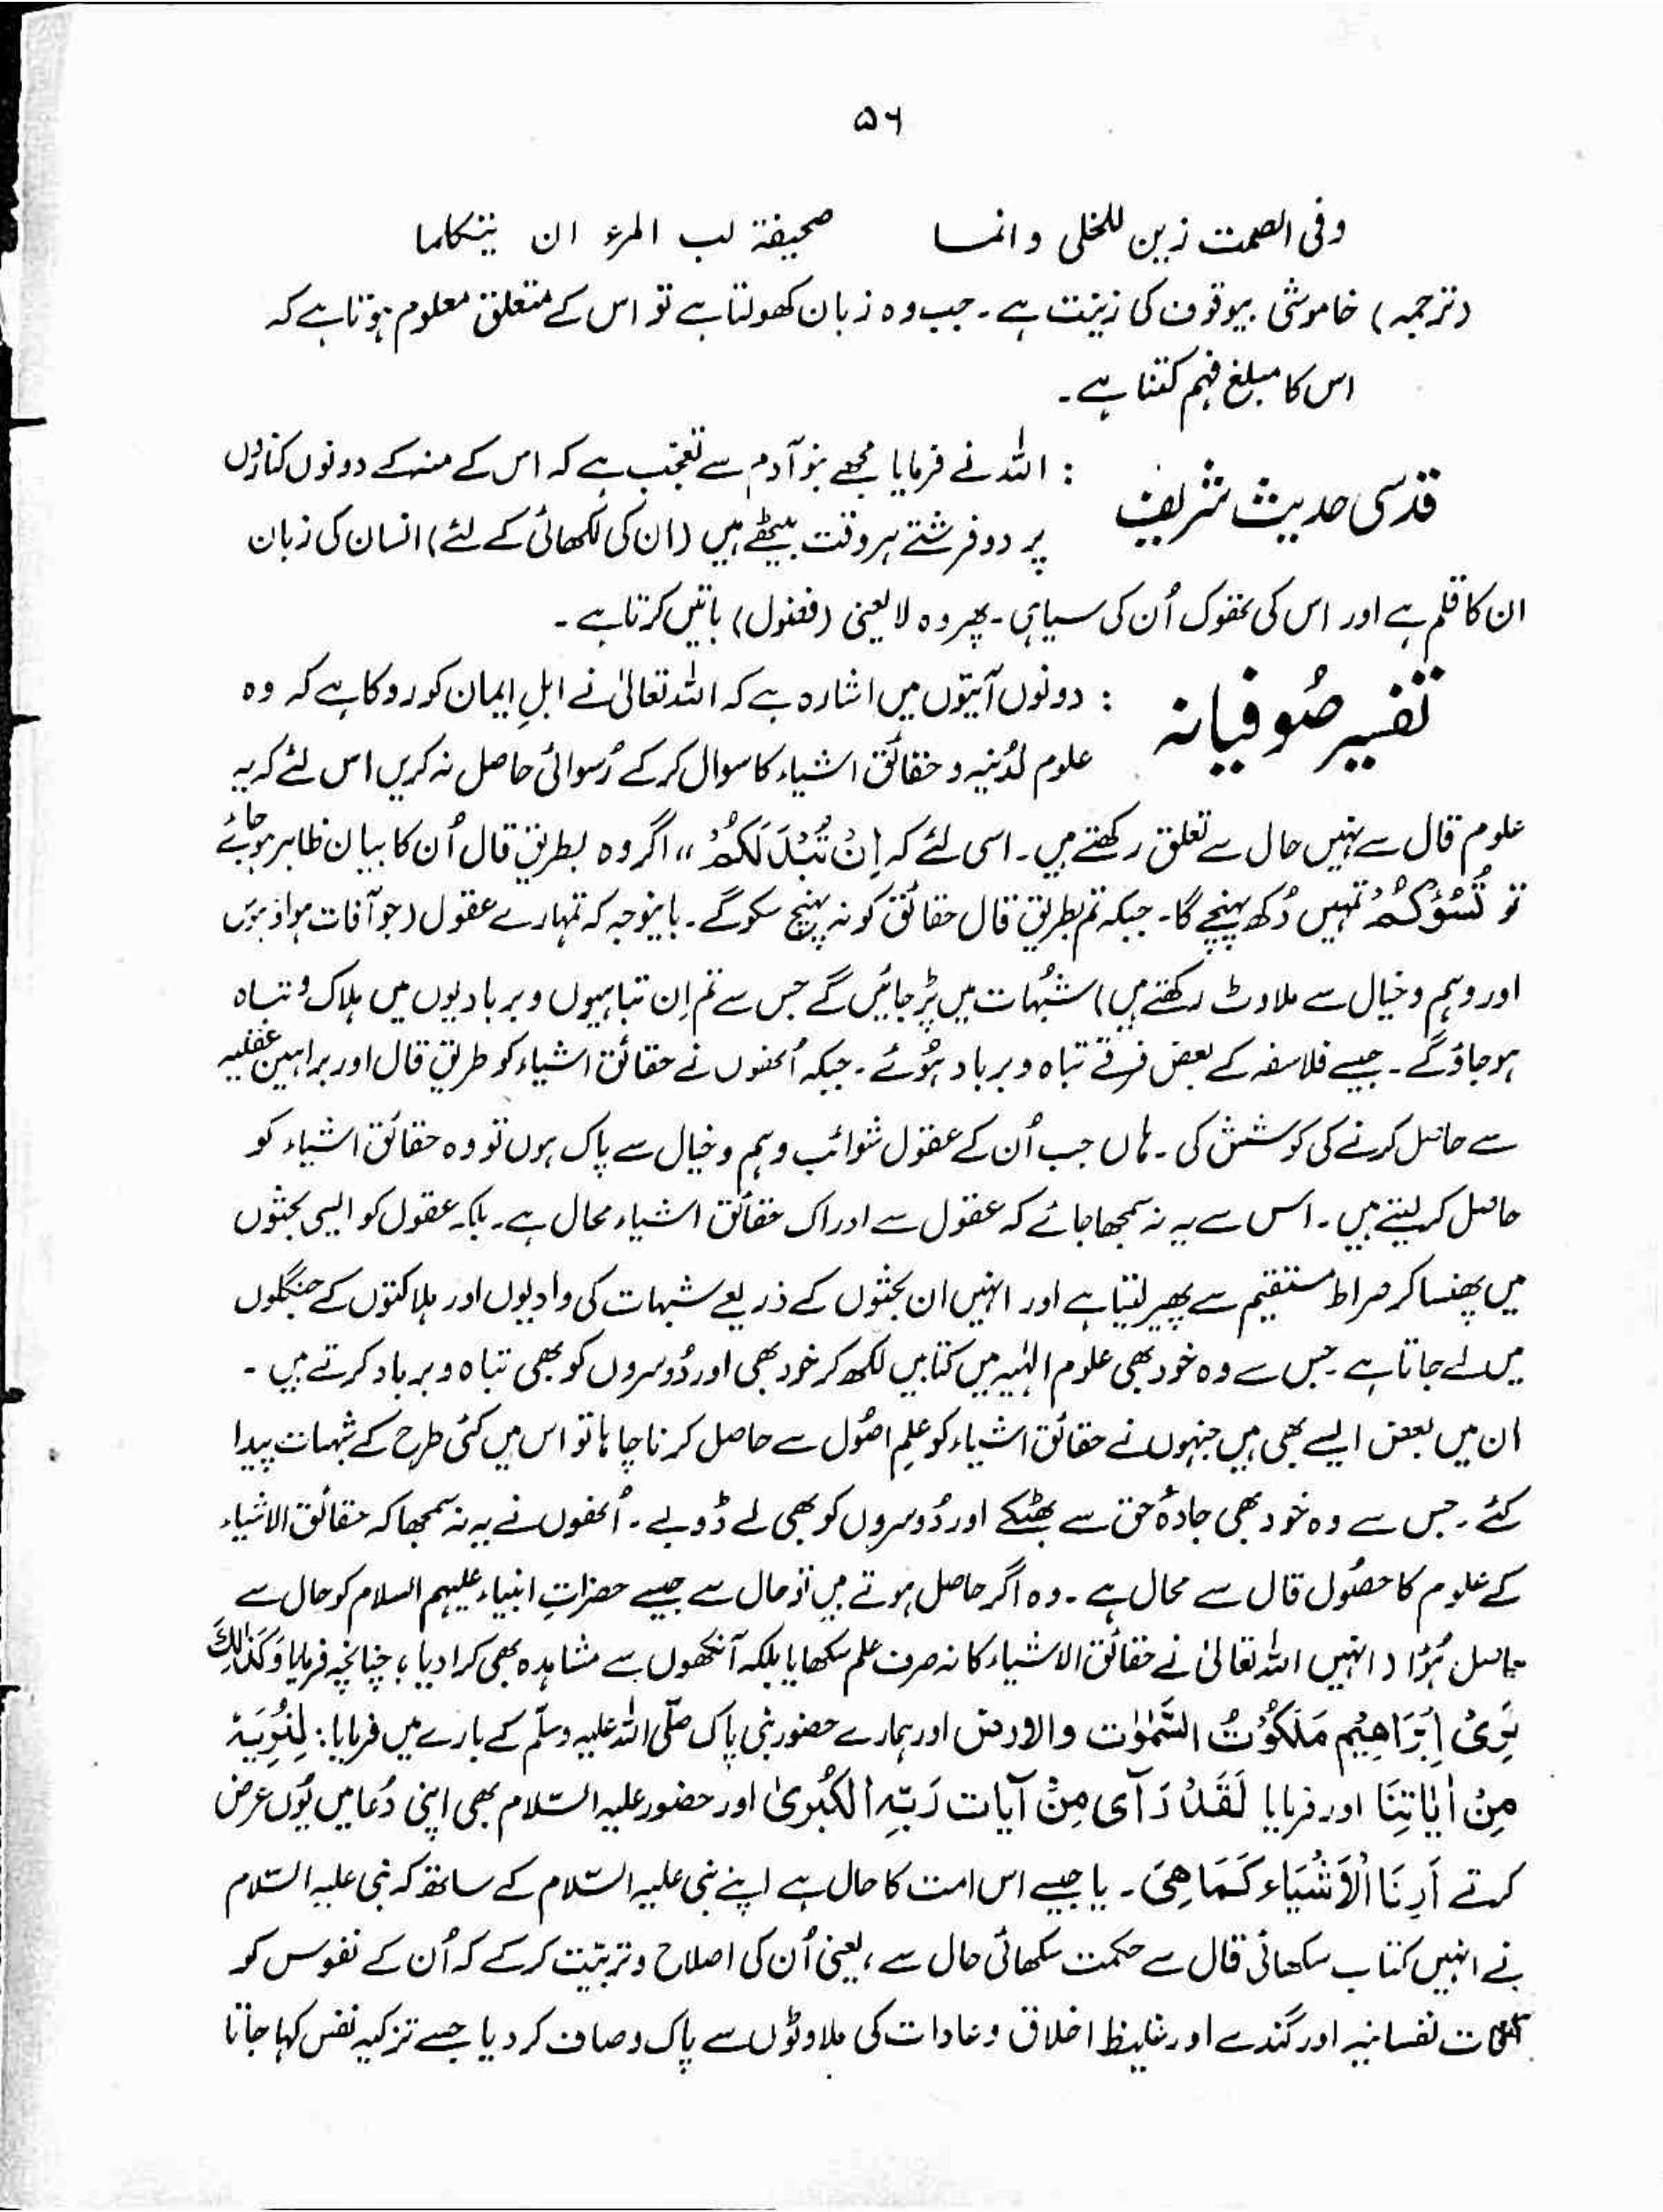 ۵۶
وفی الصمت زین للخلی وانما صحیفة لب المرء ان یتکلما
(ترجمہ) خاموشی بیوقوف کی زینت ہے۔ جب وہ زبان کھولتا ہے تو اس کے متعلق معلوم ہوتا ہے کہ
اس کا مبلغ فہم کتنا ہے۔
قدسی حدیث شریف : اللہ نے فرمایا مجھے بنو آدم سے تعجب ہے کہ اس کے منہ کے دونوں کناروں
پر دو فرشتے ہر وقت بیٹھے ہیں (ان کی لکھائی کے لئے) انسان کی زبان
ان کا قلم ہے اور اس کی تھوک اُن کی سیاہی۔ پھر وہ لا یعنی (فضول) باتیں کرتا ہے۔
تفسیر صُوفیانہ : دونوں آیتوں میں اشارہ ہے کہ اللہ تعالیٰ نے اہلِ ایمان کو روکا ہے کہ وہ
علوم لدُنیہ و حقائق اشیاء کا سوال کر کے رُسوائی حاصل نہ کریں اس لئے کہ یہ
علوم قال سے نہیں حال سے تعلق رکھتے ہیں۔ اسی لئے کہ اِنْ تُبْدَ لَكُمْ ،، اگر وہ بطریقِ قال اُن کا بیان ظاہر ہو جائے
تو تَسُؤْكُمْ تمہیں دُکھ پہنچے گا۔ جبکہ تم بطریقِ قال حقائق کو نہ پہنچ سکو گے۔ باینوجہ کہ تمہارے عقول (جو آفات ہوا و ہوس
اور وہم و خیال سے ملاوٹ رکھتے ہیں) شبُہات میں پڑ جائیں گے جس سے تم اِن تباہیوں و بربادیوں میں ہلاک و تباہ
ہو جاؤ گے۔ جیسے فلاسفہ کے بعض فرقے تباہ و برباد ہُوئے۔ جبکہ اُنھوں نے حقائق اشیاء کو طریقِ قال اور براہین عقلیہ
سے حاصل کرنے کی کوشش کی۔ ہاں جب اُن کے عقول شوائب وہم و خیال سے پاک ہوں تو وہ حقائق اشیاء کو
حاصل کر لیتے ہیں۔ اس سے یہ نہ سمجھا جائے کہ عقول سے ادراک حقائق اشیاء محال ہے۔ بلکہ عقول کو ایسی بحثوں
میں پھنسا کر صراط مستقیم سے پھیر لیتا ہے اور انہیں ان بحثوں کے ذریعے شبہات کی وادیوں اور ہلاکتوں کے جنگلوں
میں لے جاتا ہے جس سے وہ خود بھی علوم الٰہیہ میں کتابیں لکھ کر خود بھی اور دُوسروں کو بھی تباہ و برباد کرتے ہیں۔
ان میں بعض ایسے بھی ہیں جنہوں نے حقائق اشیاء کو علمِ اصُول سے حاصل کرنا چاہا تو اس میں کئی طرح کے شبہات پیدا
کئے۔ جس سے وہ خود بھی جادۂ حق سے بھٹکے اور دُوسروں کو بھی لے ڈوبے۔ اُنھوں نے یہ نہ سمجھا کہ حقائق الاشیاء
کے علوم کا حصُول قال سے محال ہے۔ وہ اگر حاصل ہوتے ہیں تو حال سے جیسے حضراتِ انبیاء علیہم السلام کو حال سے
حاصل ہُوا (انہیں اللہ تعالیٰ نے حقائق الاشیاء کا نہ صرف علم سکھایا بلکہ آنکھوں سے مشاہدہ بھی کرا دیا ، چنانچہ فرمایا وَكَذٰلِكَ
نُرِیْ اِبْرَاهِیْم مَلَكُوْتَ السَّمٰوٰت والارض اور ہمارے حضور نبی پاک صلّی اللہ علیہ وسلّم کے بارے میں فرمایا: لِنُرِیَهٗ
مِنْ اٰیَاتِنَا اور فرمایا لَقَدْ رَآی مِنْ آیات رَبِّهِ الْكُبْرىٰ اور حضور علیہ السّلام بھی اپنی دُعا میں یُوں عرض
کرتے اَرِنَا الْاَشْیَاء كَمَا هِیَ۔ یا جیسے اس امت کا حال ہے اپنے نبی علیہ السّلام کے ساتھ کہ نبی علیہ السّلام
نے انہیں کتاب سکھائی قال سے حکمت سکھائی حال سے ، یعنی اُن کی اصلاح و تربیّت کر کے کہ اُن کے نفوس کو
نفسانیہ اور گندے اور غلیظ اخلاق و عادات کی ملاوٹوں سے پاک و صاف کر دیا جسے تزکیہ نفس کہا جاتا